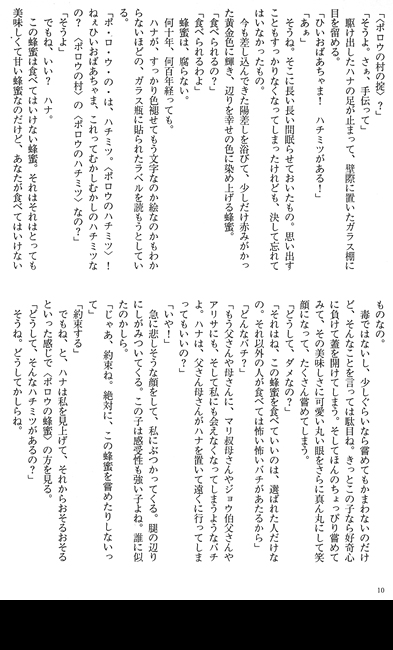 「〈ボロウの村の掟〉?」
「そうよ。さぁ、手伝って」
　駆け出したハナの足が止まって、壁際に置いたガラス棚に
目を留める。
「ひいおばあちゃま!　ハチミツがある!」
「あぁ」
　そうね。そこに長い長い間眠らせておいたもの。思い出す
こともすっかりなくなってしまったけれども、決して忘れて
はいなかったもの。
　今も差し込んできた陽差しを浴びて、少しだけ赤みがかっ
た黄金色に輝き、辺りを幸せの色に染め上げる蜂蜜。
「食べられるの?」
「食べられるわよ」
　蜂蜜は、腐らない。
　何十年、何百年経っても。
　ハナが、すっかり色褪せてもう文字なのか絵なのかもわか
らないほどの、ガラス瓶に貼られたラベルを読もうとしてい
る。
「ボ・ロ・ウ・の・は、ハチミツ。〈ボロウのハチミツ〉!
ねぇひいおばあちゃま、これってむかしむかしのハチミツな
の?　〈ボロウの村〉の〈ボロウのハチミツ〉なの?」
「そうよ」
　でもね、いい?　ハナ。
　この蜂蜜は食べてはいけない蜂蜜。それはそれはとっても
美味しくて甘い蜂蜜なのだけど、あなたが食べてはいけない
ものなの。
　毒ではないし、少しぐらいなら嘗めてもかまわないのだけ
ど、そんなことを言っては駄目ね。きっとこの子なら好奇心
に負けて蓋を開けてしまう。そしてほんのちょっぴり嘗めて
みて、その美味しさに可愛い丸い眼をさらに真ん丸にして笑
顔になって、たくさん嘗めてしまう。
「どうして、ダメなの?」
「それはね、この蜂蜜を食べていいのは、選ばれた人だけな
の。それ以外の人が食べては怖い怖いバチがあたるから」
「どんなバチ?」
「もう父さんや母さんに、マリ叔母さんやジョウ伯父さんや
アリサにも、そして私にも会えなくなってしまうようなバチ
よ。ハナは、父さん母さんがハナを置いて遠くに行ってしま
ってもいいの?」
「いや!」
　急に悲しそうな顔をして、私にぶつかってくる。腿の辺り
にしがみついてくる。この子は感受性も強い子よね。誰に似
たのかしら。
「じゃあ、約束ね。絶対に、この蜂蜜を嘗めたりしないっ
て」
「約束する」
　でもね、と、ハナは私を見上げて、それからおそるおそる
といった感じで〈ボロウの蜂蜜〉の方を見る。
「どうして、そんなハチミツがあるの?」
　そうね。どうしてかしらね。
10